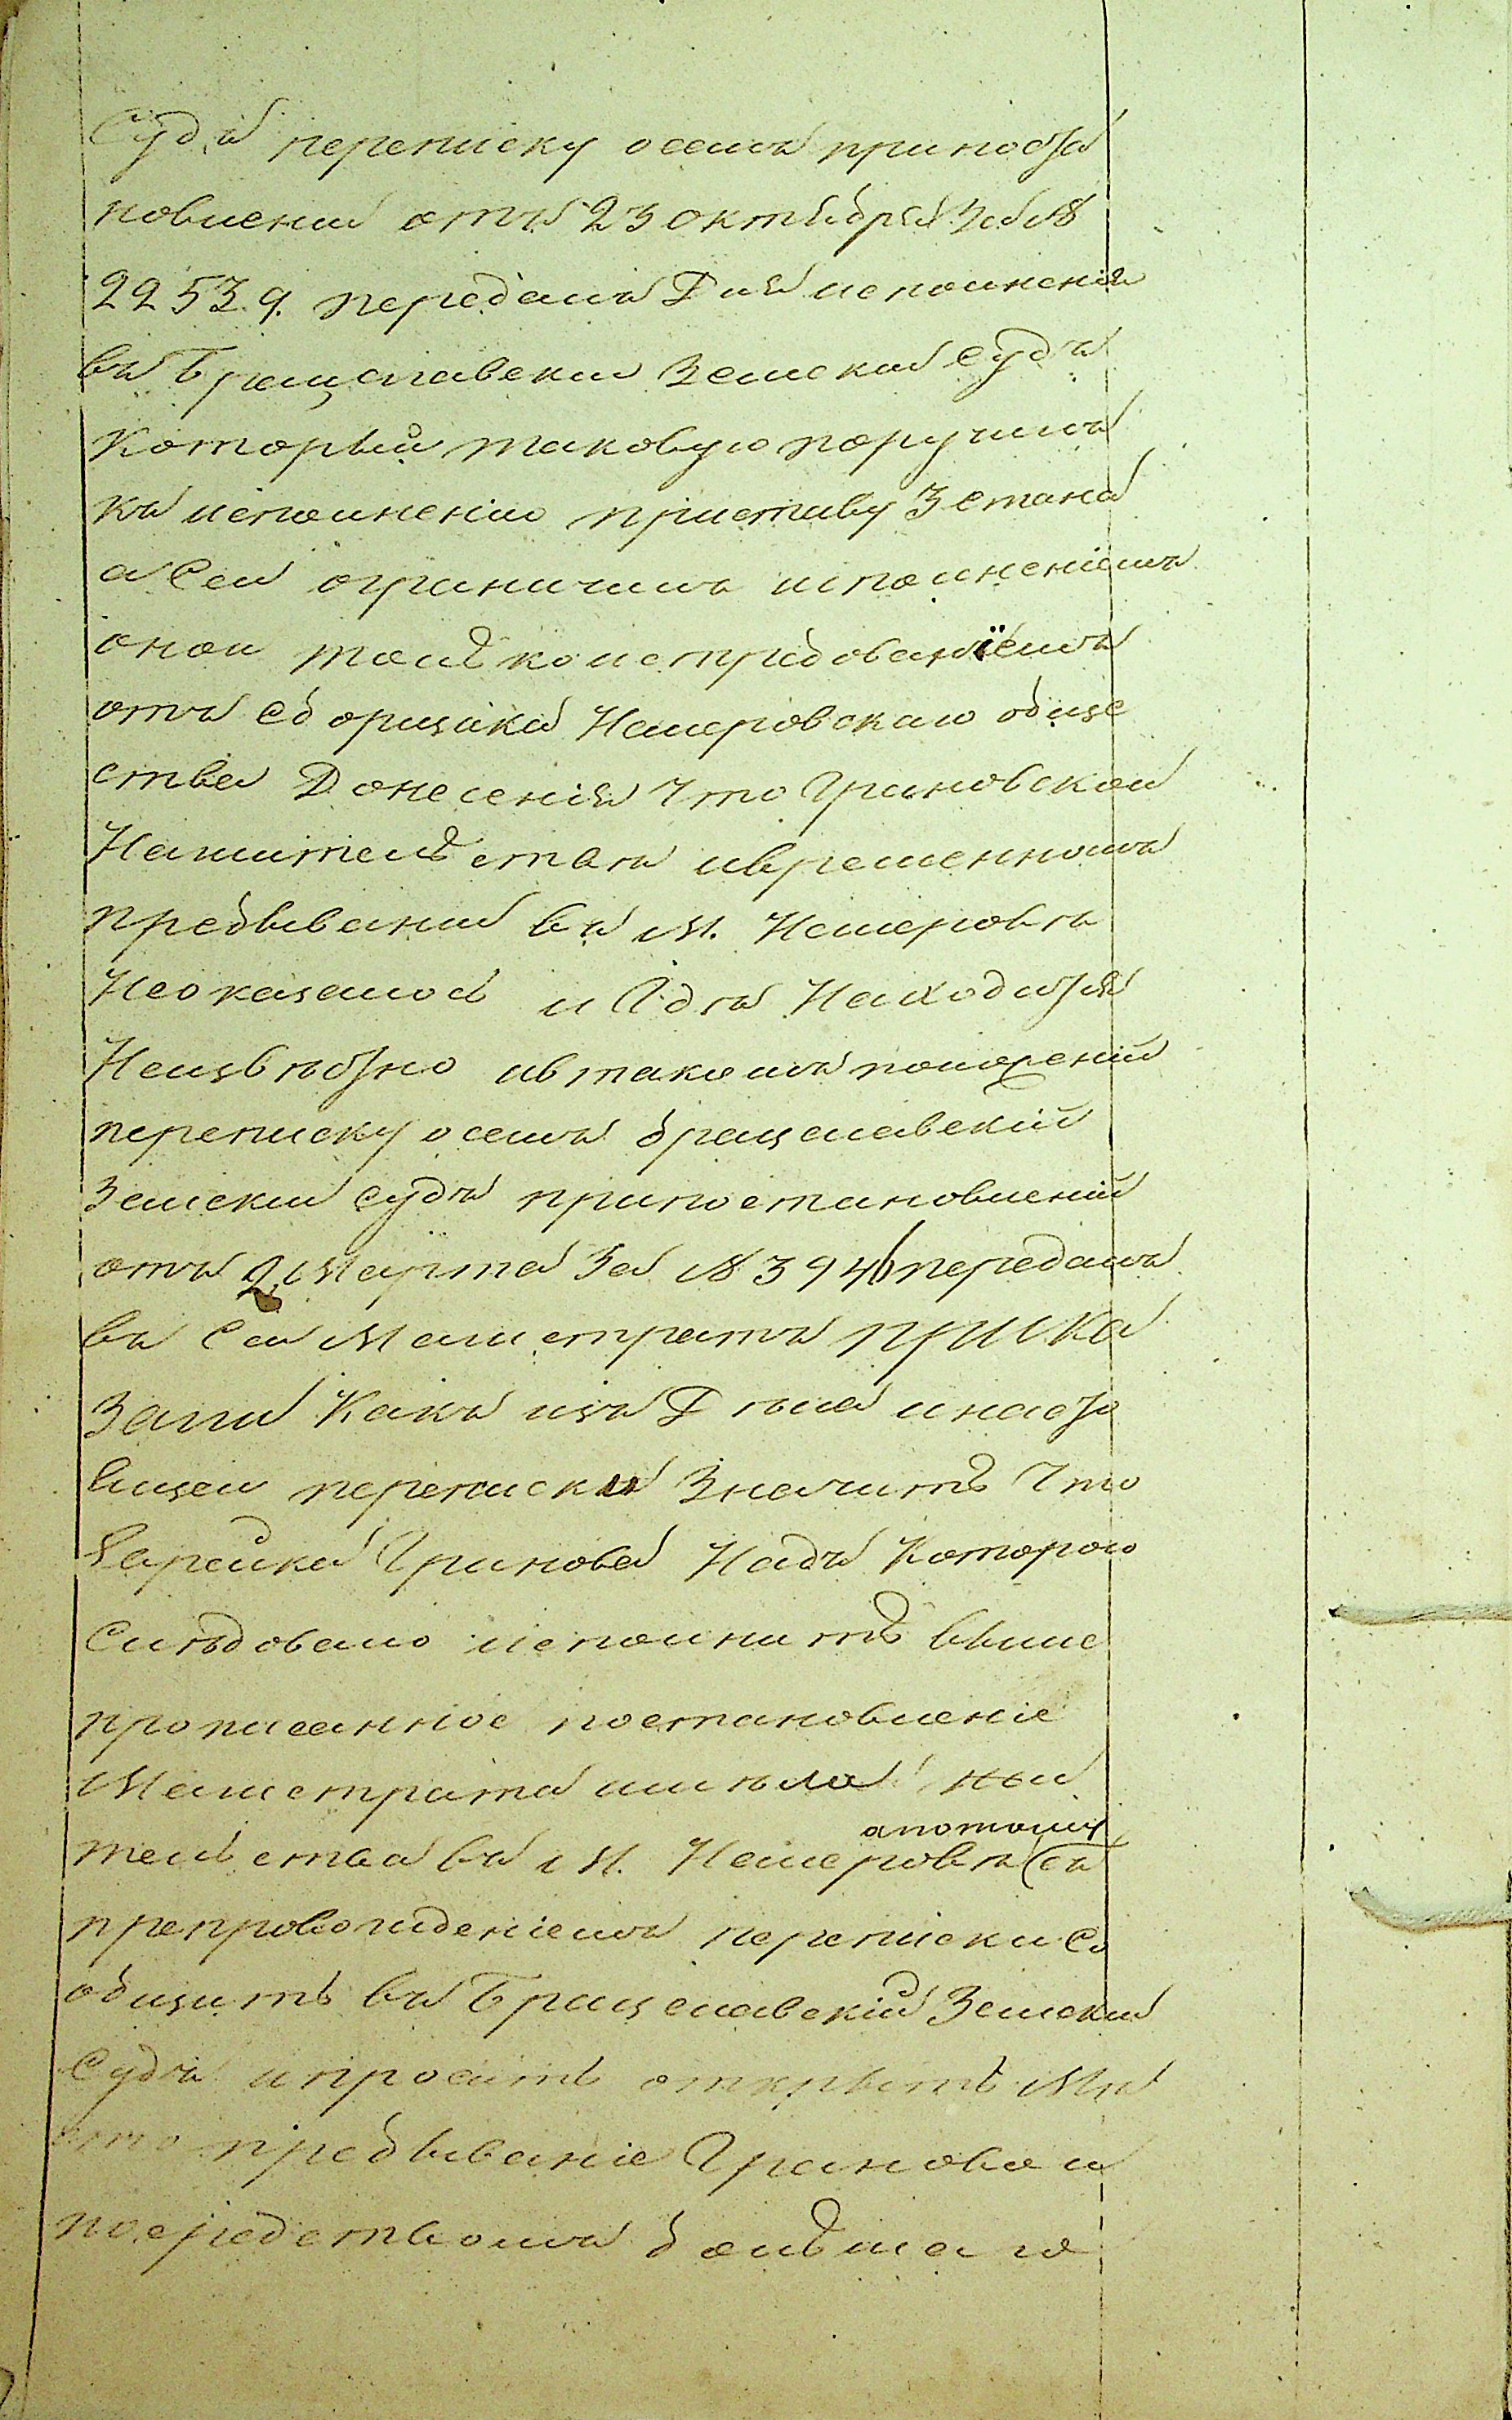 Судъ переписку осемъ припоста
новлении отъ 23 октября за №
22539. передалъ Для исполнения
въ Брацлавски Земский судъ
Который таковую поручилъ
къ исполнению приставу 3 стана
а Сей ограничилъ исполненіемъ
оной только истрѣбованіемъ
отъ сборщика Немеровскаго обще
ства Донесения что Грановской
Нажительствѣ ивременномъ
пребывании въ м. Немеровѣ
Неоказалось и Гдѣ Находится
Неизвѣстно ивтакомъ положеній
переписку осемъ брацлавский
Земский судъ припостановлений
отъ 2 Марта За № 3946 передалъ
въ Сей Магистратъ прика
зали Какъ изъ Дѣла инасто
ящей переписки Значитъ что
Сарейка Гранова Надъ Которою
Слѣдовало исполнить выше
прописанное постановление
Магистрата имѣла жи
тельства въ м. Немеровѣ апотому съ
препровождениемъ переписки со
общить въ Брацславский Земский
Судъ ипросить открыть мѣ
сто пребывание Грановой
посредствомъ большаго